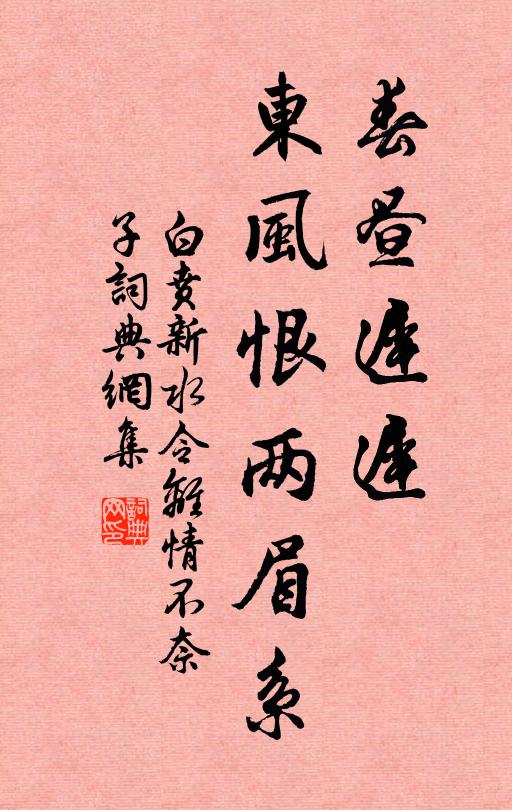 春昼遲遲
東風恨两眉系
白賁新水令離情不奈
子詞典網集
詞典
网印